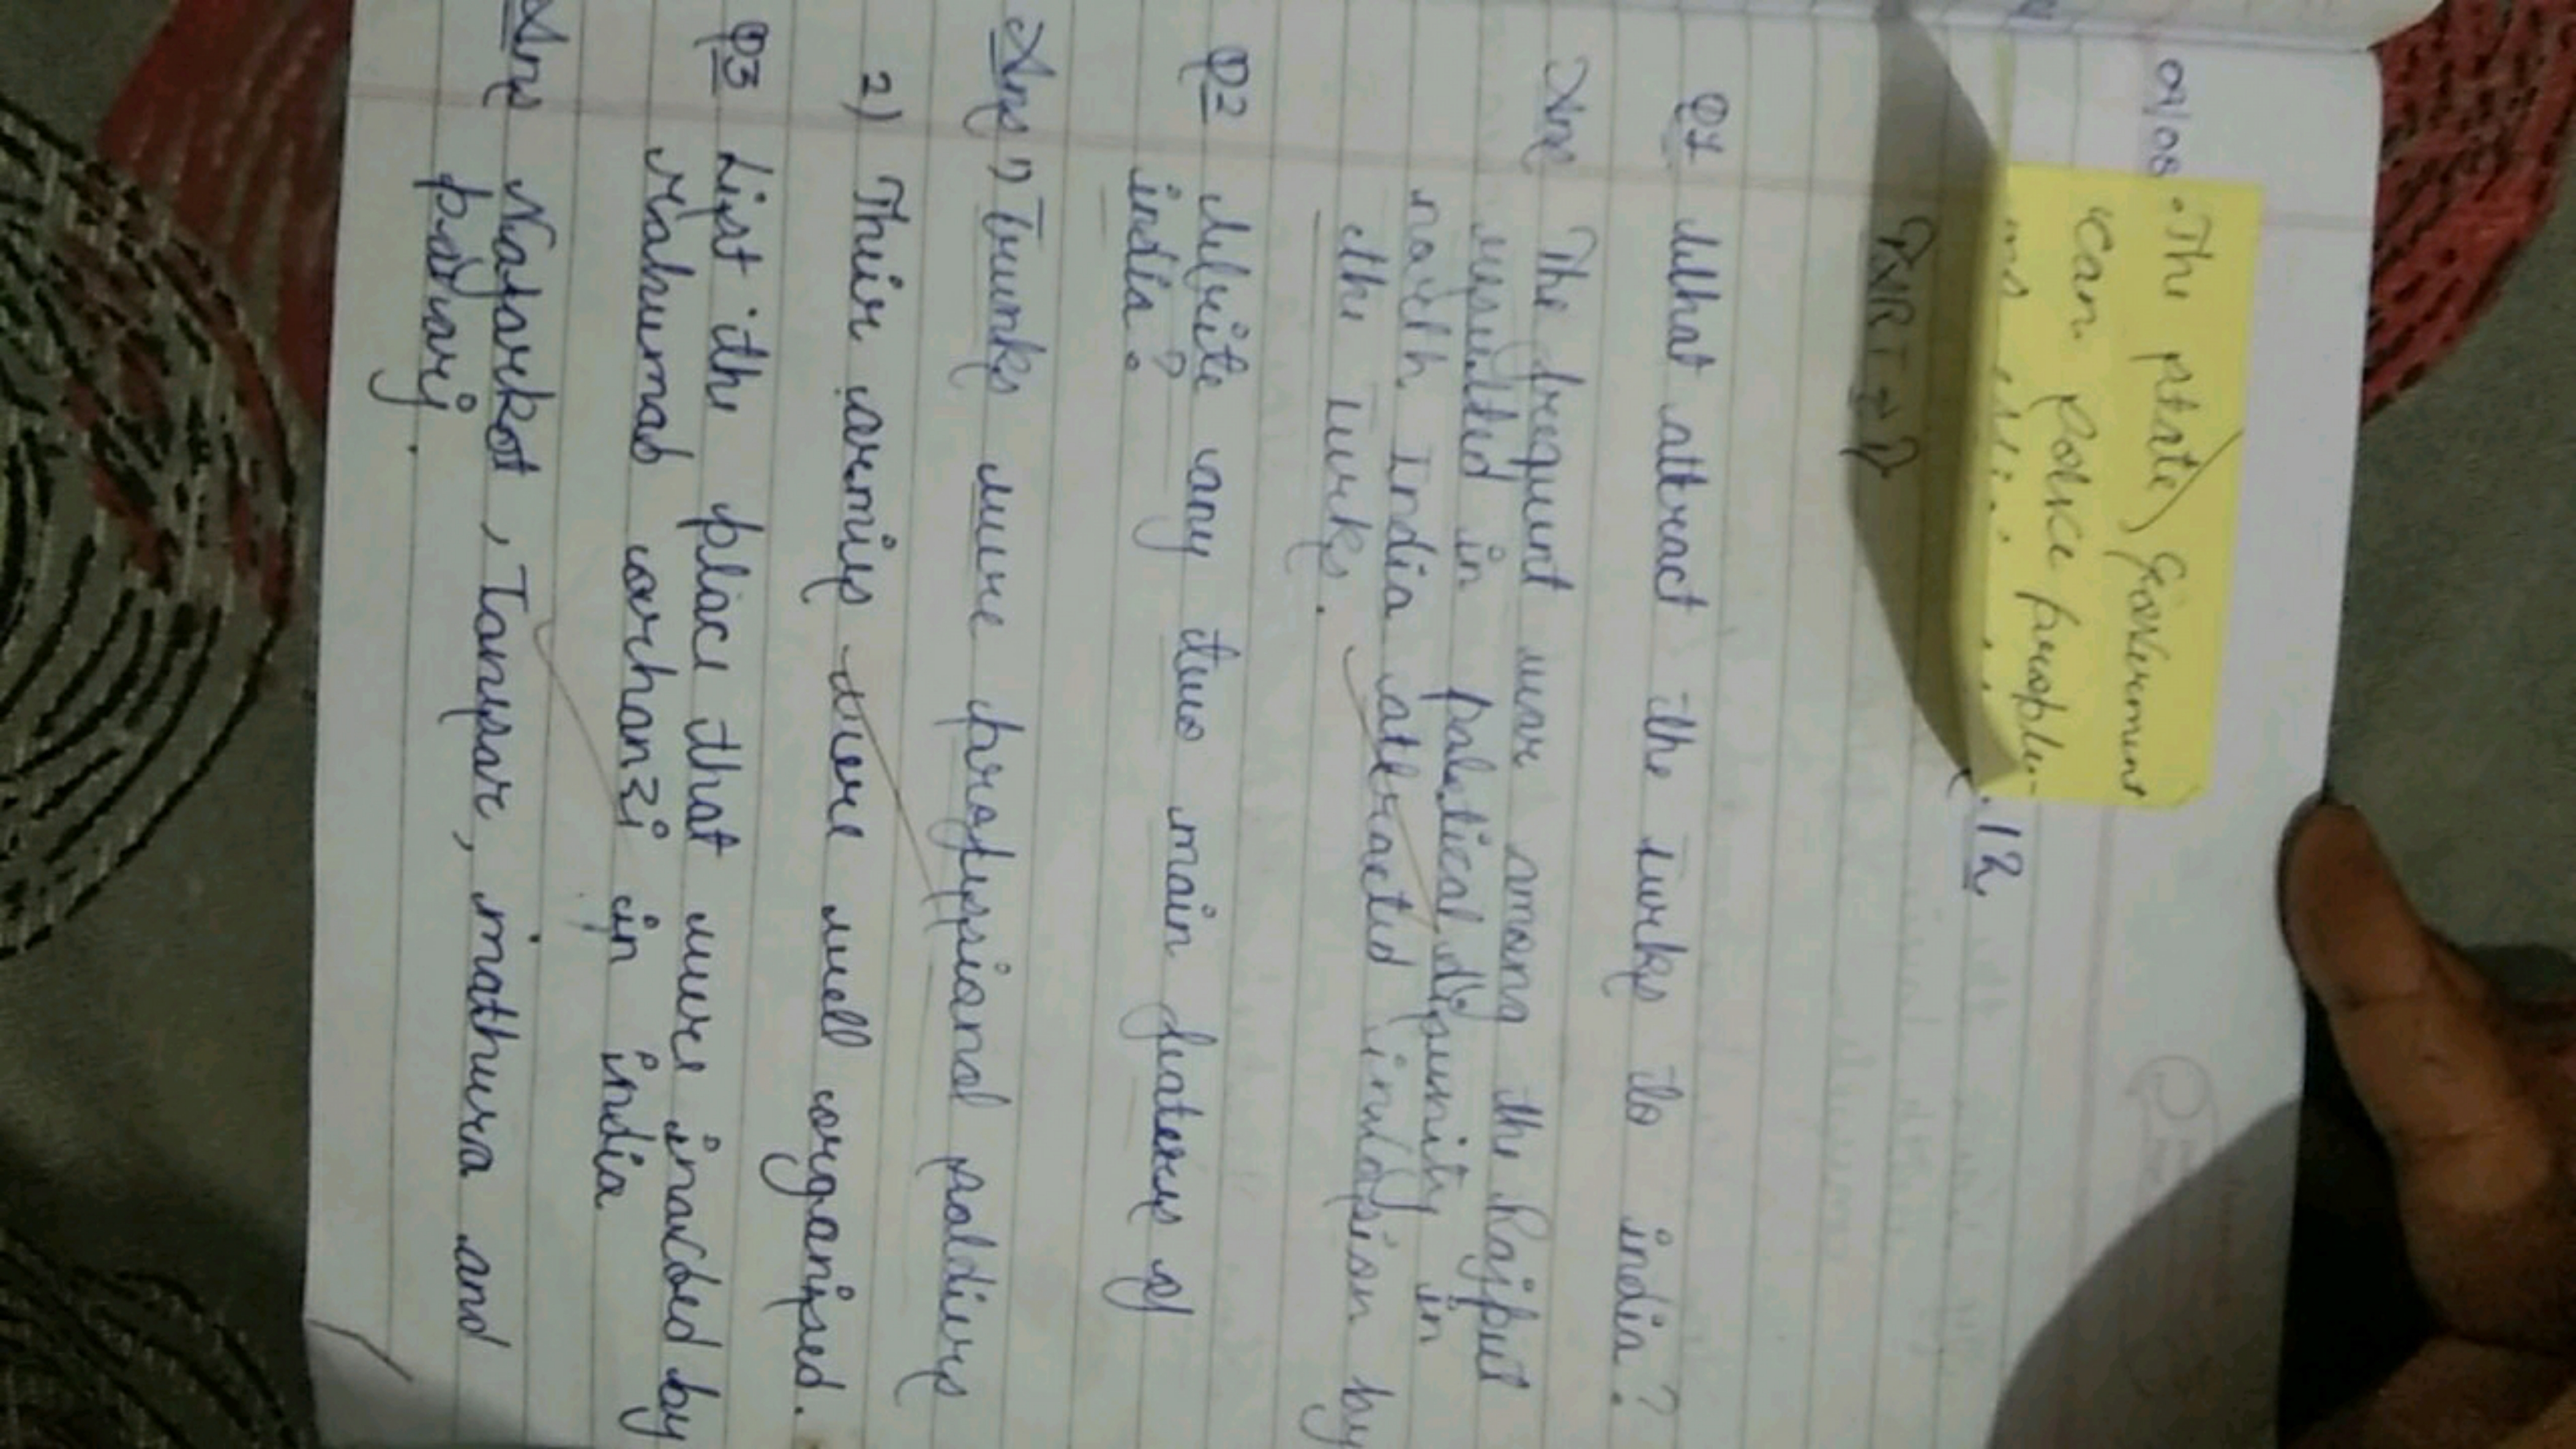 09/08
. The state Government
can police peraple-
.12
PART ⇒ B
Q1 What attract the Turks to india?
Ans The frequent war among the Rajput
resulted in palatical disunity in
north India attracted invlasion by
the Turks.
Q2 Write any two main featerus of
india?
Ans 1) Trunks were professional soldiers
2) Their armies were well organised.
Q3 List the place that were invaded by
Mahumab arhanzi in india
Ans Nagarkot, Tansar, mathura and